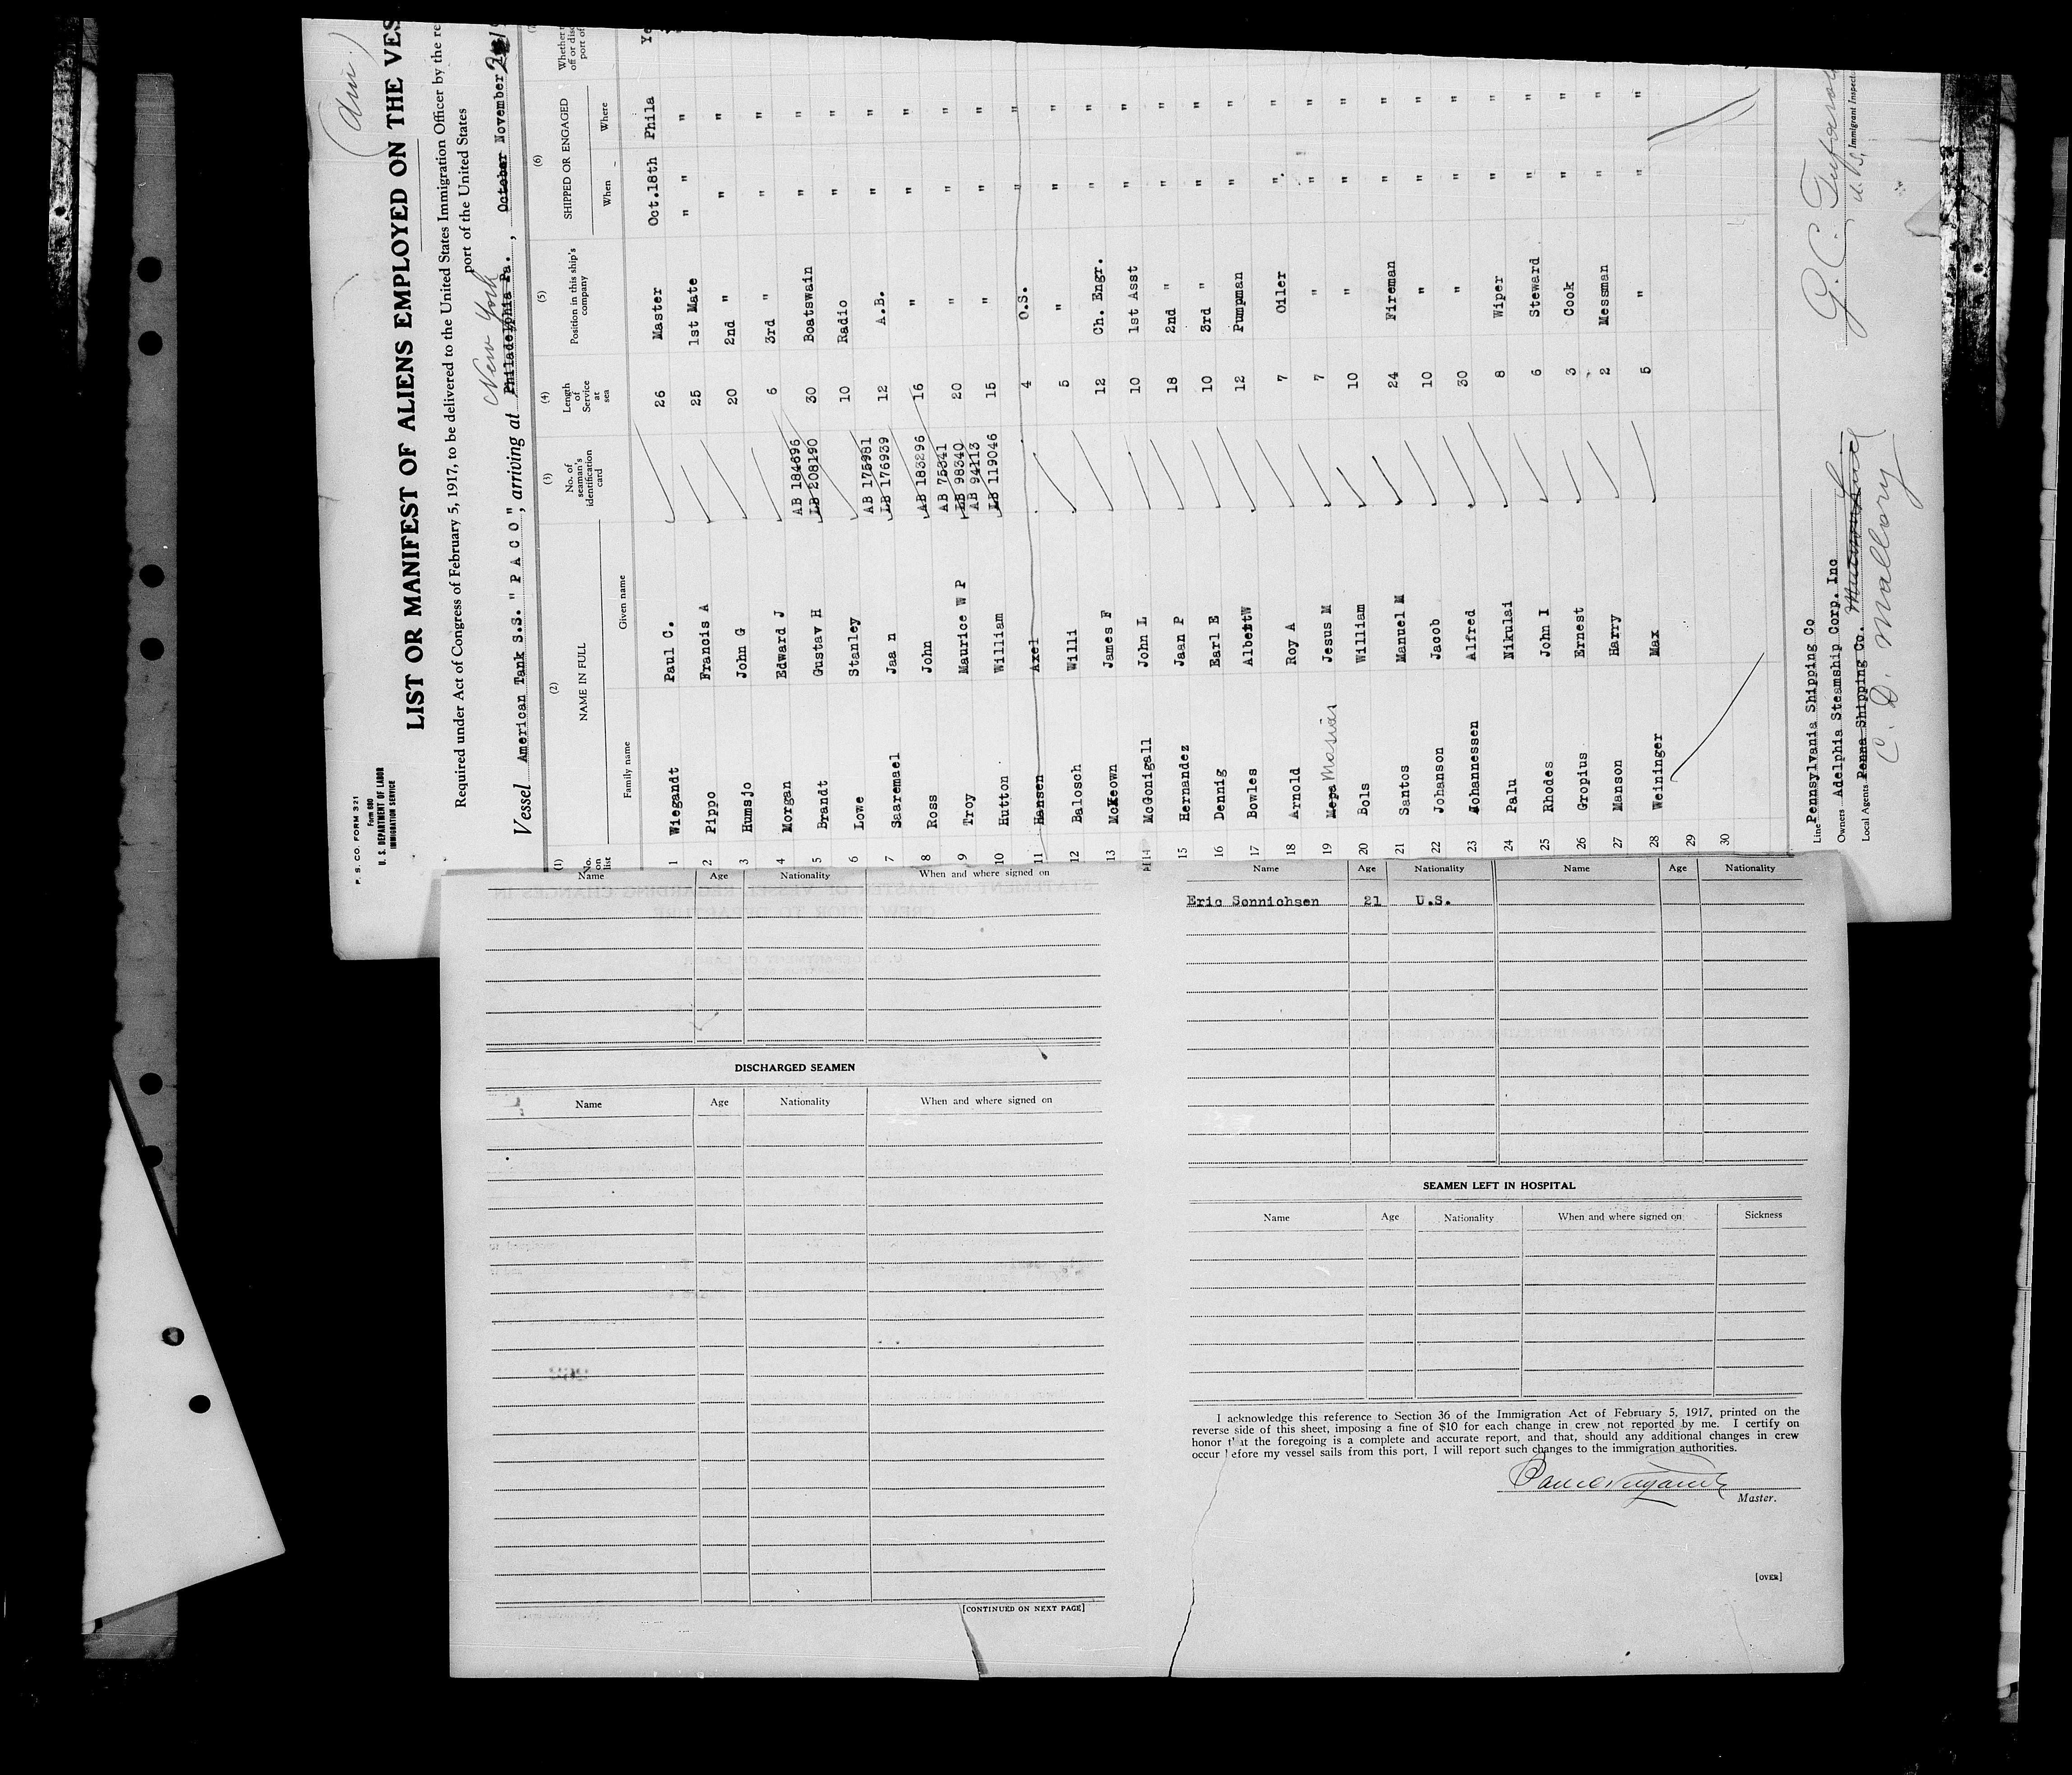 P. S. CO. FORM 321
Form 680
U. S. DEPARTMENT OF LABOR
IMMIGRATION SERVICE
LIST OR MANIFEST OF ALIENS EMPLOYED ON THE VES
Required under Act of Congress of February 5, 1917, to be delivered to the United States Immigration Officer by the re
port of the United States
New York
Vessel American Tank S.S. "P A C O", arriving at Philadelphia Pa., October November
(1) (2) (3) (4) (5) (6)
No. on list NAME IN FULL No. of seaman's identification card Length of Service at sea Position in this ship's company SHIPPED OR ENGAGED Whether
Family name Given name When Where
1 Wiegandt Paul C. 26 Master Oct.18th Phila Ye
2 Pippo Francis A 25 1st Mate " " "
3 Humsjo John G 20 2nd " " "
4 Morgan Edward J 6 3rd " " "
5 Brandt Gustav H AB 184696 LB 208190 30 Boatswain " "
6 Lowe Stanley 10 Radio " "
7 Saaremael Jaa n AB 175981 LB 176939 12 A.B. " "
8 Ross John AB 183296 16 " " "
9 Troy Maurice W P AB 75341 LB 98340 20 " " "
10 Hutton William AB 94113 LB 119046 15 " " "
11 Hansen Axel 4 O.S. " "
12 Balosch Willi 5 " " "
13 McKeown James F 12 Ch. Engr. " "
14 McGonigall John L 10 1st Asst " "
15 Hernandez Jaan P 18 2nd " " "
16 Dennig Earl E 10 3rd " " "
17 Bowles Albert W 12 Pumpman " "
18 Arnold Roy A 7 Oiler " "
19 Mepa Masivas Jesus M 7 " " "
20 Bols William 10 " " "
21 Santos Manuel M 24 Fireman " "
22 Johanson Jacob 10 " " "
23 Johannessen Alfred 30 " " "
24 Palu Nikulai 8 Wiper " "
25 Rhodes John I 6 Steward " "
26 Gropius Ernest 3 Cook " "
27 Manson Harry 2 Messman " "
28 Weininger Max 5 " " "
29
30
Line Pennsylvania Shipping Co
Owners Adelphia Steamship Corp. Inc
Local Agents Penna Shipping Co.
C. D. Mallory
U.S. Immigrant Inspect
Name Age Nationality When and where signed on
DISCHARGED SEAMEN
Name Age Nationality When and where signed on
[CONTINUED ON NEXT PAGE]
Name Age Nationality Name Age Nationality
Eric Sonnichsen 21 U.S.
SEAMEN LEFT IN HOSPITAL
Name Age Nationality When and where signed on Sickness
I acknowledge this reference to Section 36 of the Immigration Act of February 5, 1917, printed on the
reverse side of this sheet, imposing a fine of $10 for each change in crew not reported by me. I certify on
honor that the foregoing is a complete and accurate report, and that, should any additional changes in crew
occur before my vessel sails from this port, I will report such changes to the immigration authorities.
Master.
[OVER]